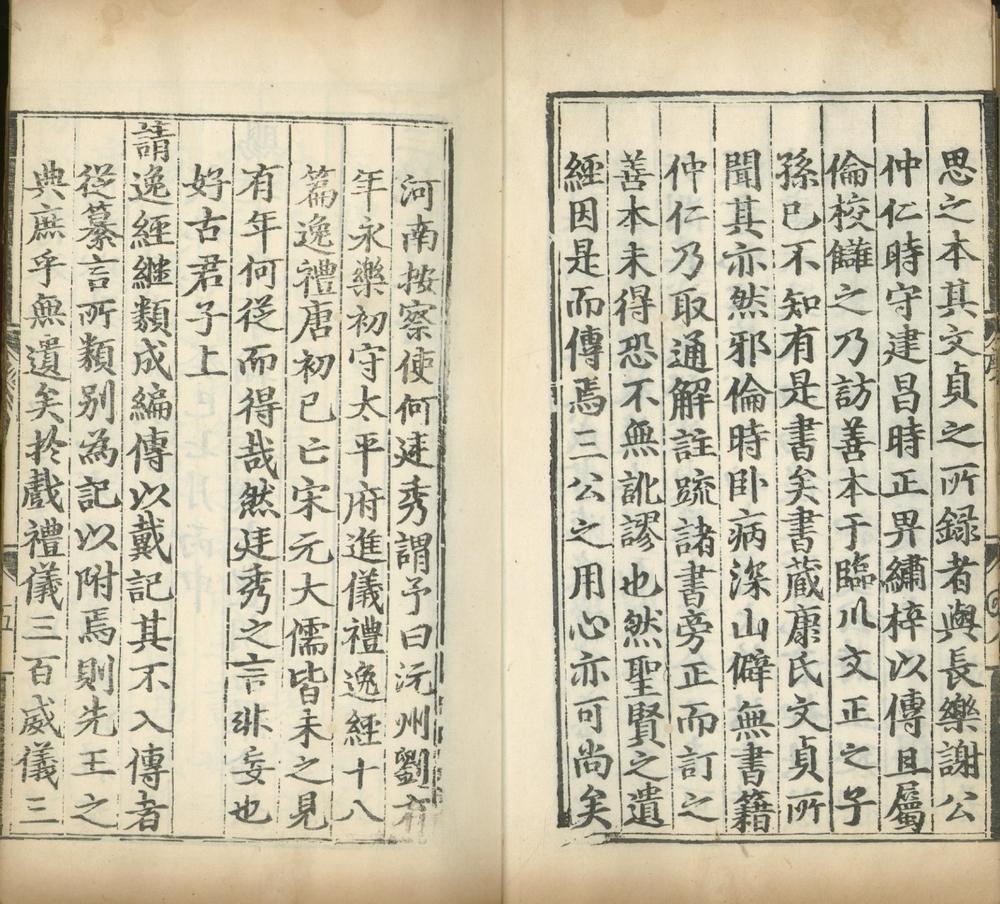 思之本其文貞之所録者與長樂謝公
仲仁時守建昌時正畀繡梓以傳且屬
倫校讎之乃訪善本于臨川文正之子
孫已不知有是書矣書藏康氏文貞所
聞其亦然邪倫時卧病深山僻無書籍
仲仁乃取通解註䟽諸書旁正而訂之
善本未得恐不無訛謬也然聖賢之遺
經因是而傳焉三公之用心亦可尚矣
河南按察使何廷秀謂予曰沅州劉有
年永樂初守太平府進儀禮逸經十八
篇逸禮唐初已亡宋元大儒皆未之見
有年何從而得哉然廷秀之言非妄也
好古君子上
請逸經継類成編傳以戴記其不入傳者
從纂言所類别為記以附焉則先王之
典庶乎無遺矣於戲禮儀三百威儀三
五